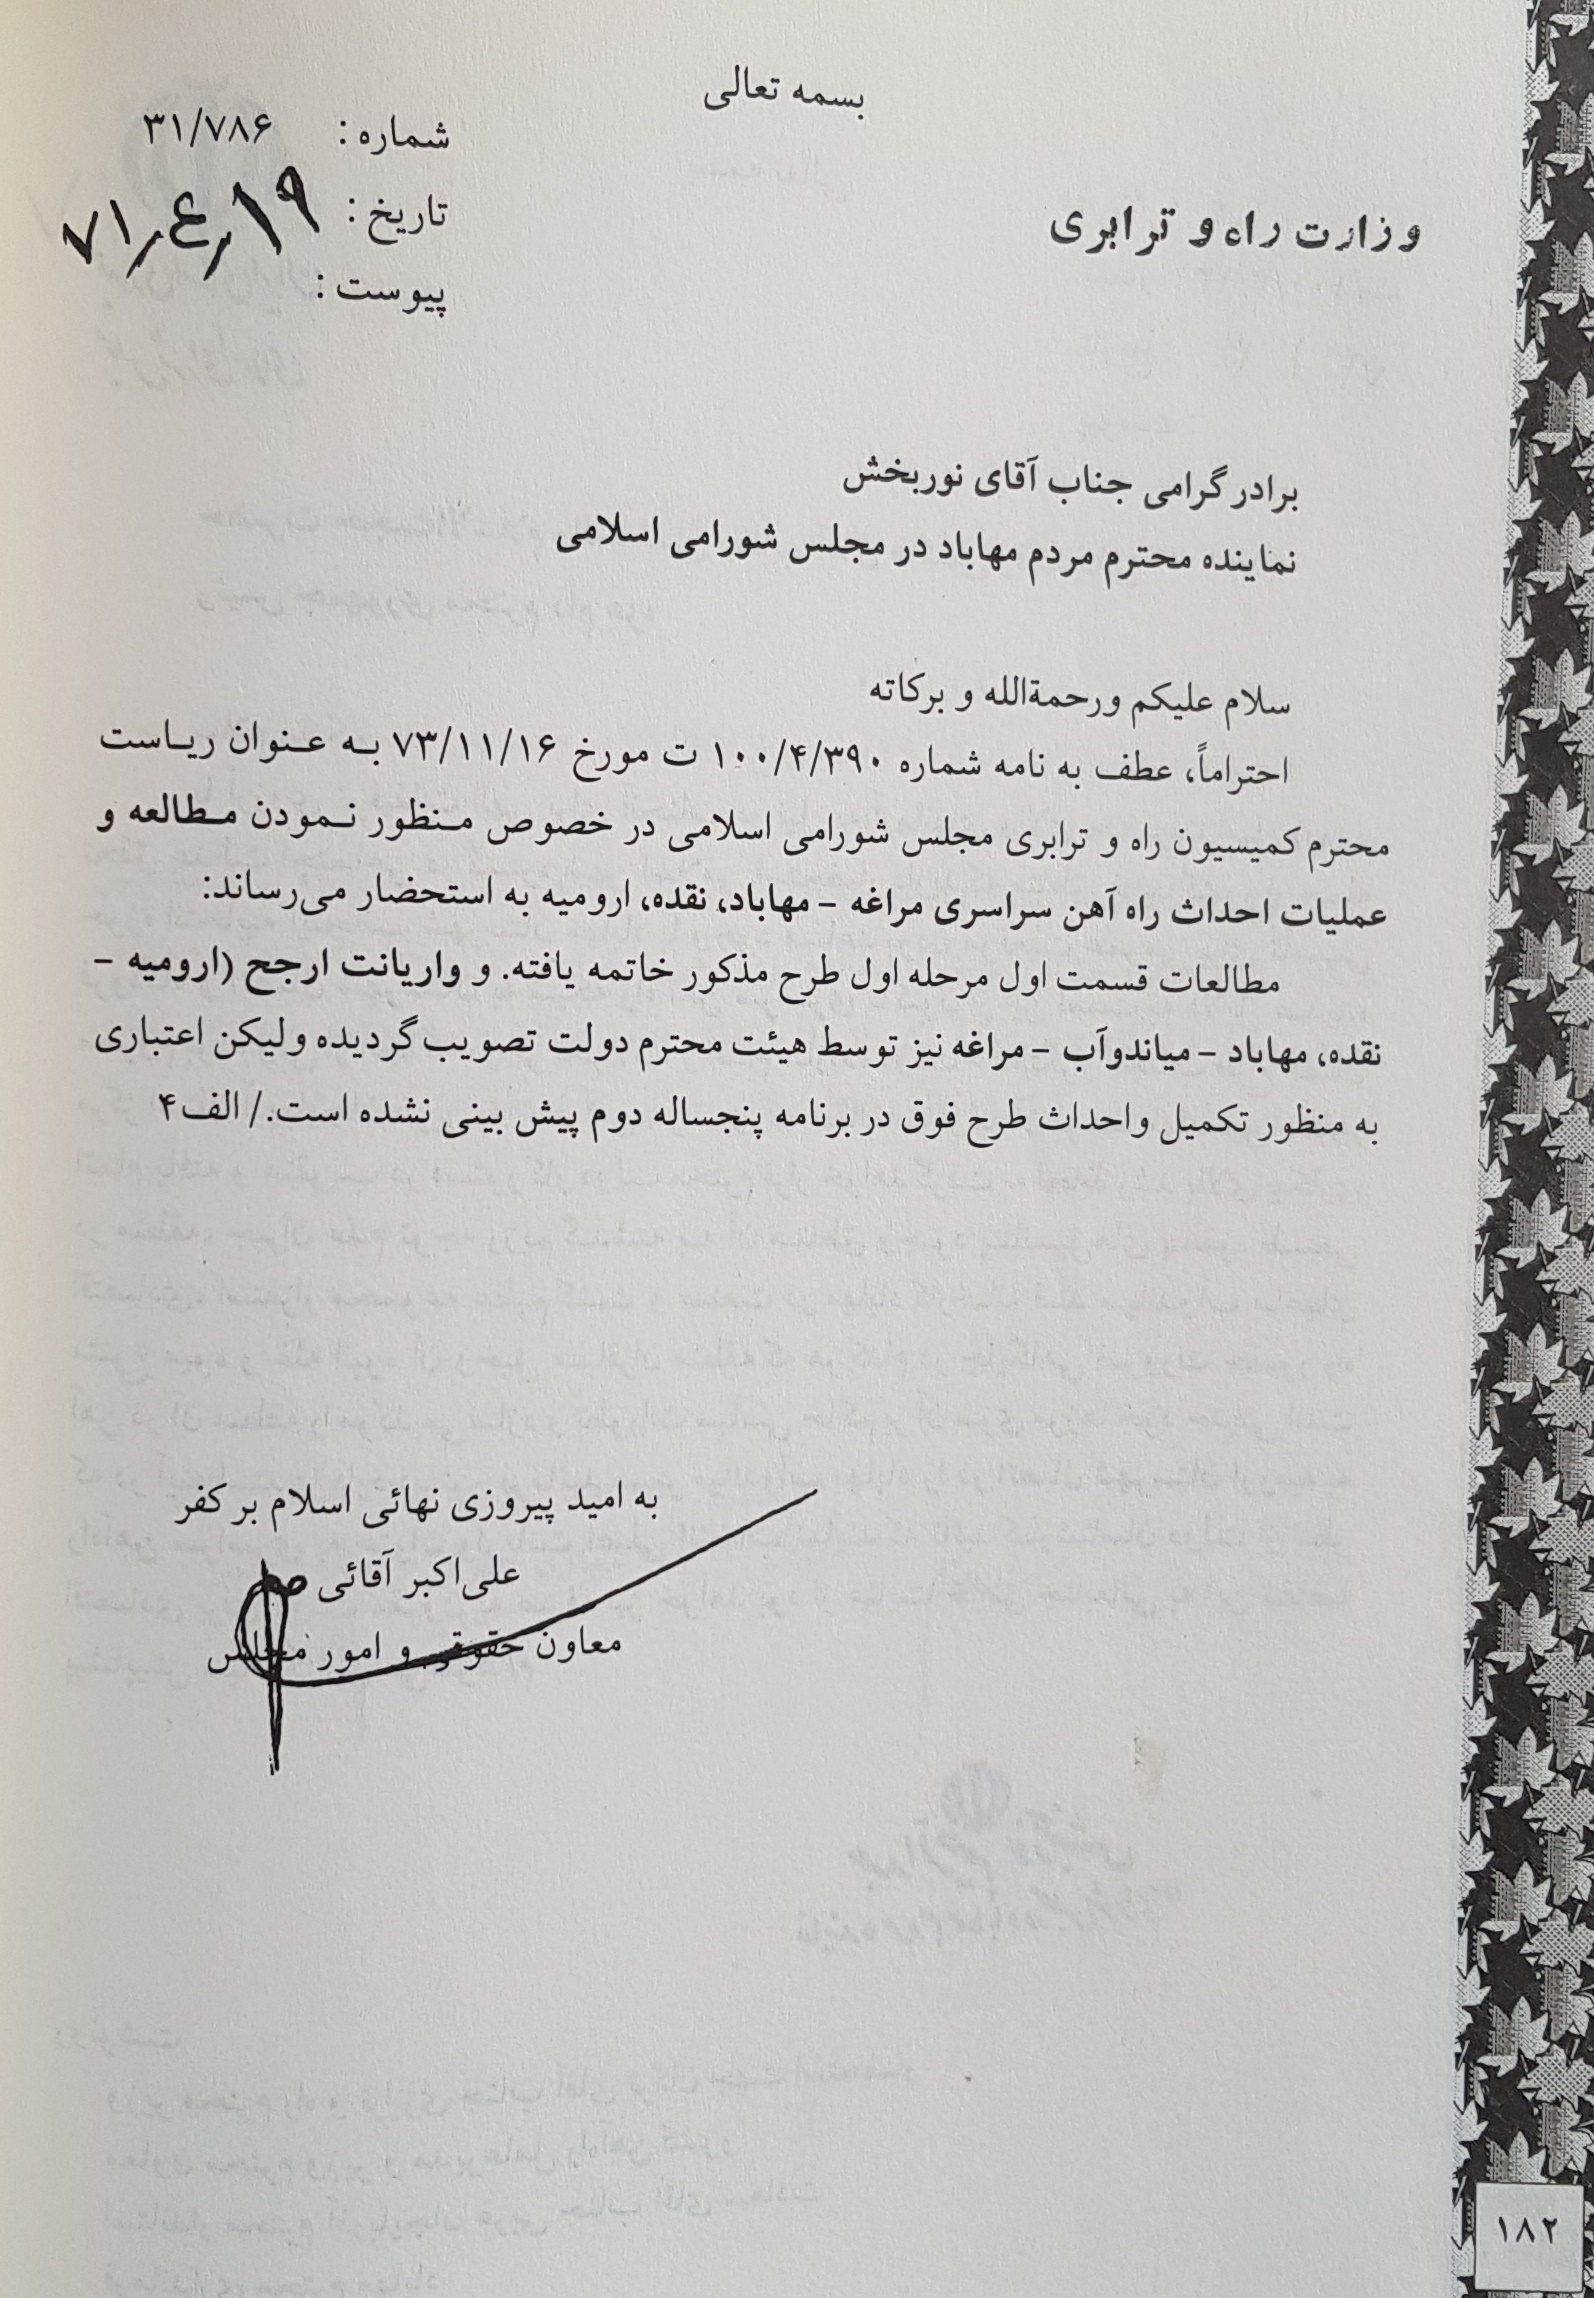 بسمه تعالی
شماره : ۳۱/۷۸۶
تاریخ : ۷۱/۴/۱۹
پیوست :
وزارت راه و ترابری
برادر گرامی جناب آقای نوربخش
نماینده محترم مردم مهاباد در مجلس شورامی اسلامی
سلام علیکم ورحمةالله و برکاته
احتراماً، عطف به نامه شماره ۱۰۰/۴/۳۹۰ ت مورخ ۷۳/۱۱/۱۶ به عنوان ریاست
محترم کمیسیون راه و ترابری مجلس شورامی اسلامی در خصوص منظور نمودن مطالعه و
عملیات احداث راه آهن سراسری مراغه – مهاباد، نقده، ارومیه به استحضار می‌رساند:
مطالعات قسمت اول مرحله اول طرح مذکور خاتمه یافته. و واریانت ارجح (ارومیه –
نقده، مهاباد – میاندوآب – مراغه نیز توسط هیئت محترم دولت تصویب گردیده ولیکن اعتباری
به منظور تکمیل واحداث طرح فوق در برنامه پنجساله دوم پیش بینی نشده است./ الف۴
به امید پیروزی نهائی اسلام بر کفر
علی‌اکبر آقائی
معاون حقوقی و امور مجلس
۱۸۲